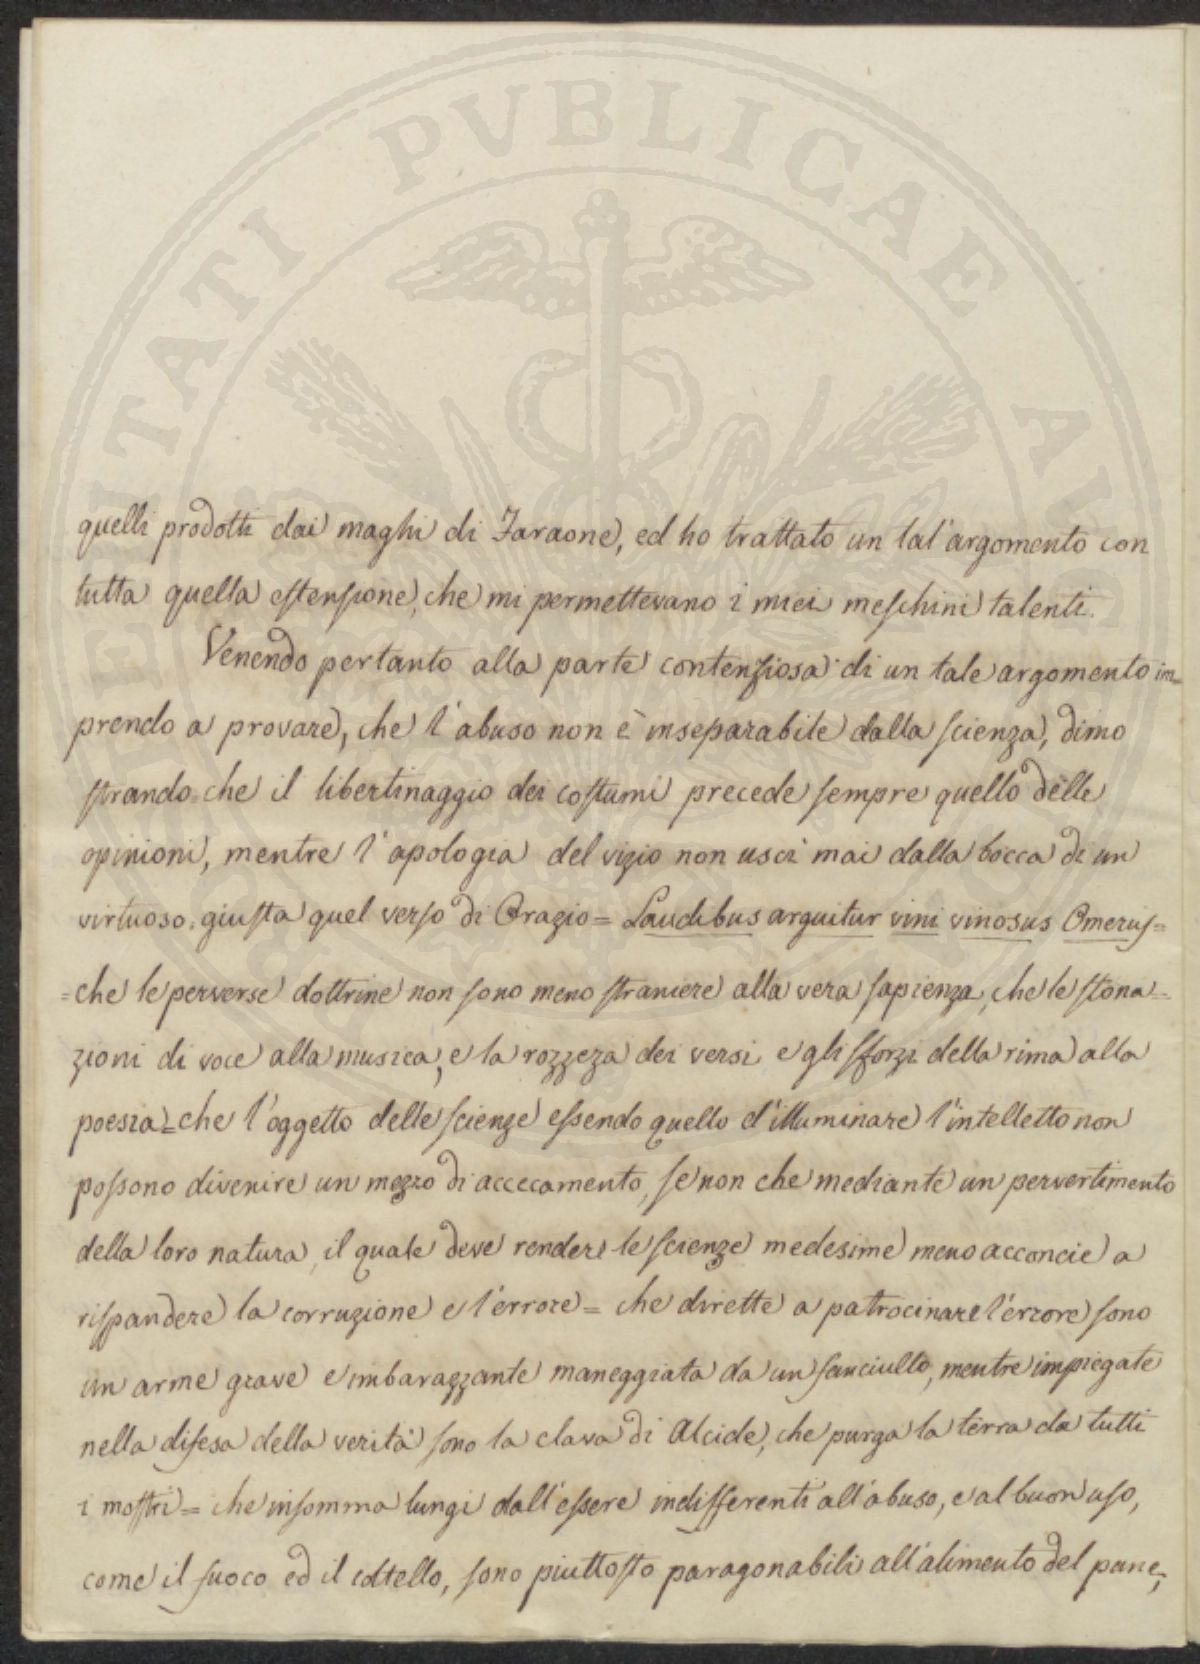 PROSPERITATI PUBLICAE AUGENDAE
quelli prodotti dai maghi di Faraone, ed ho trattato un tal'argomento con
tutta quella estensione, che mi permettevano i miei meschini talenti.
Venendo pertanto alla parte contenziosa di un tale argomento im=
prendo a provare, che l'abuso non è inseparabile dalla scienza, dimo
strando=che il libertinaggio dei costumi precede sempre quello delle
opinioni, mentre l'apologia del vizio non uscì mai dalla bocca di un
virtuoso, giusta quel verso di Orazio= Laudibus arguitur vini vinosus Omerus=
=che le perverse dottrine non sono meno straniere alla vera sapienza, che le stona=
zioni di voce alla musica, e la rozzeza dei versi e gli sforzi della rima alla
poesia=che l'oggetto delle scienze essendo quello d'illuminare l'intelletto non
possono divenire un mezzo di accecamento, se non che mediante un pervertimento
della loro natura, il quale deve rendere le scienze medesime meno acconcie a
rispandere la corruzione e l'errore= che dirette a patrocinare l'errore sono
un arme grave e imbarazzante maneggiata da un fanciullo, mentre impiegate
nella difesa della verità sono la clava di Alcide, che purga la terra da tutti
i mostri= che insomma lungi dall'essere indifferenti all'abuso, e al buon uso,
come il fuoco ed il coltello, sono piuttosto paragonabili all'alimento del pane,